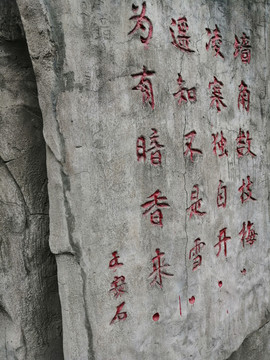 墙角数枝梅，
凌寒独自开。
遥知不是雪，
为有暗香来。
王安石